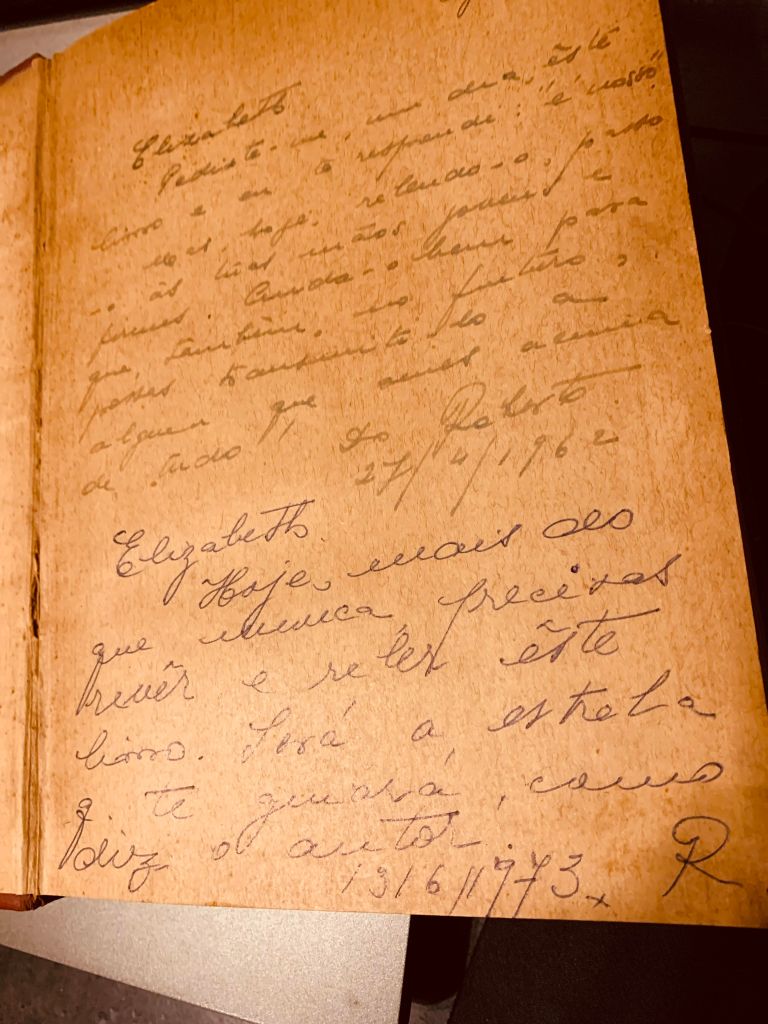 Elizabeth
Pediste-me, um dia, êste
livro e eu te respondi: "é nosso".
Mas, hoje, relendo-o, passo
-o às tuas mãos jovens e
firmes. Cuida-o bem para
que, também, no futuro,
possas transmiti-lo a
alguem que ames acima
de tudo!
Do Roberto
27/4/1962
Elizabeth.
Hoje, mais do
que nunca, precisas
revêr e reler êste
livro. Será a estrela
q te guiará, como
diz o autor.
13/6/1973. R